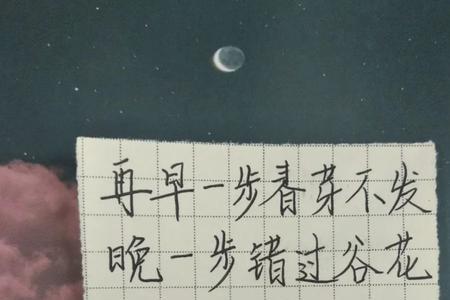 再早一步春芽不发
晚一步错过谷花